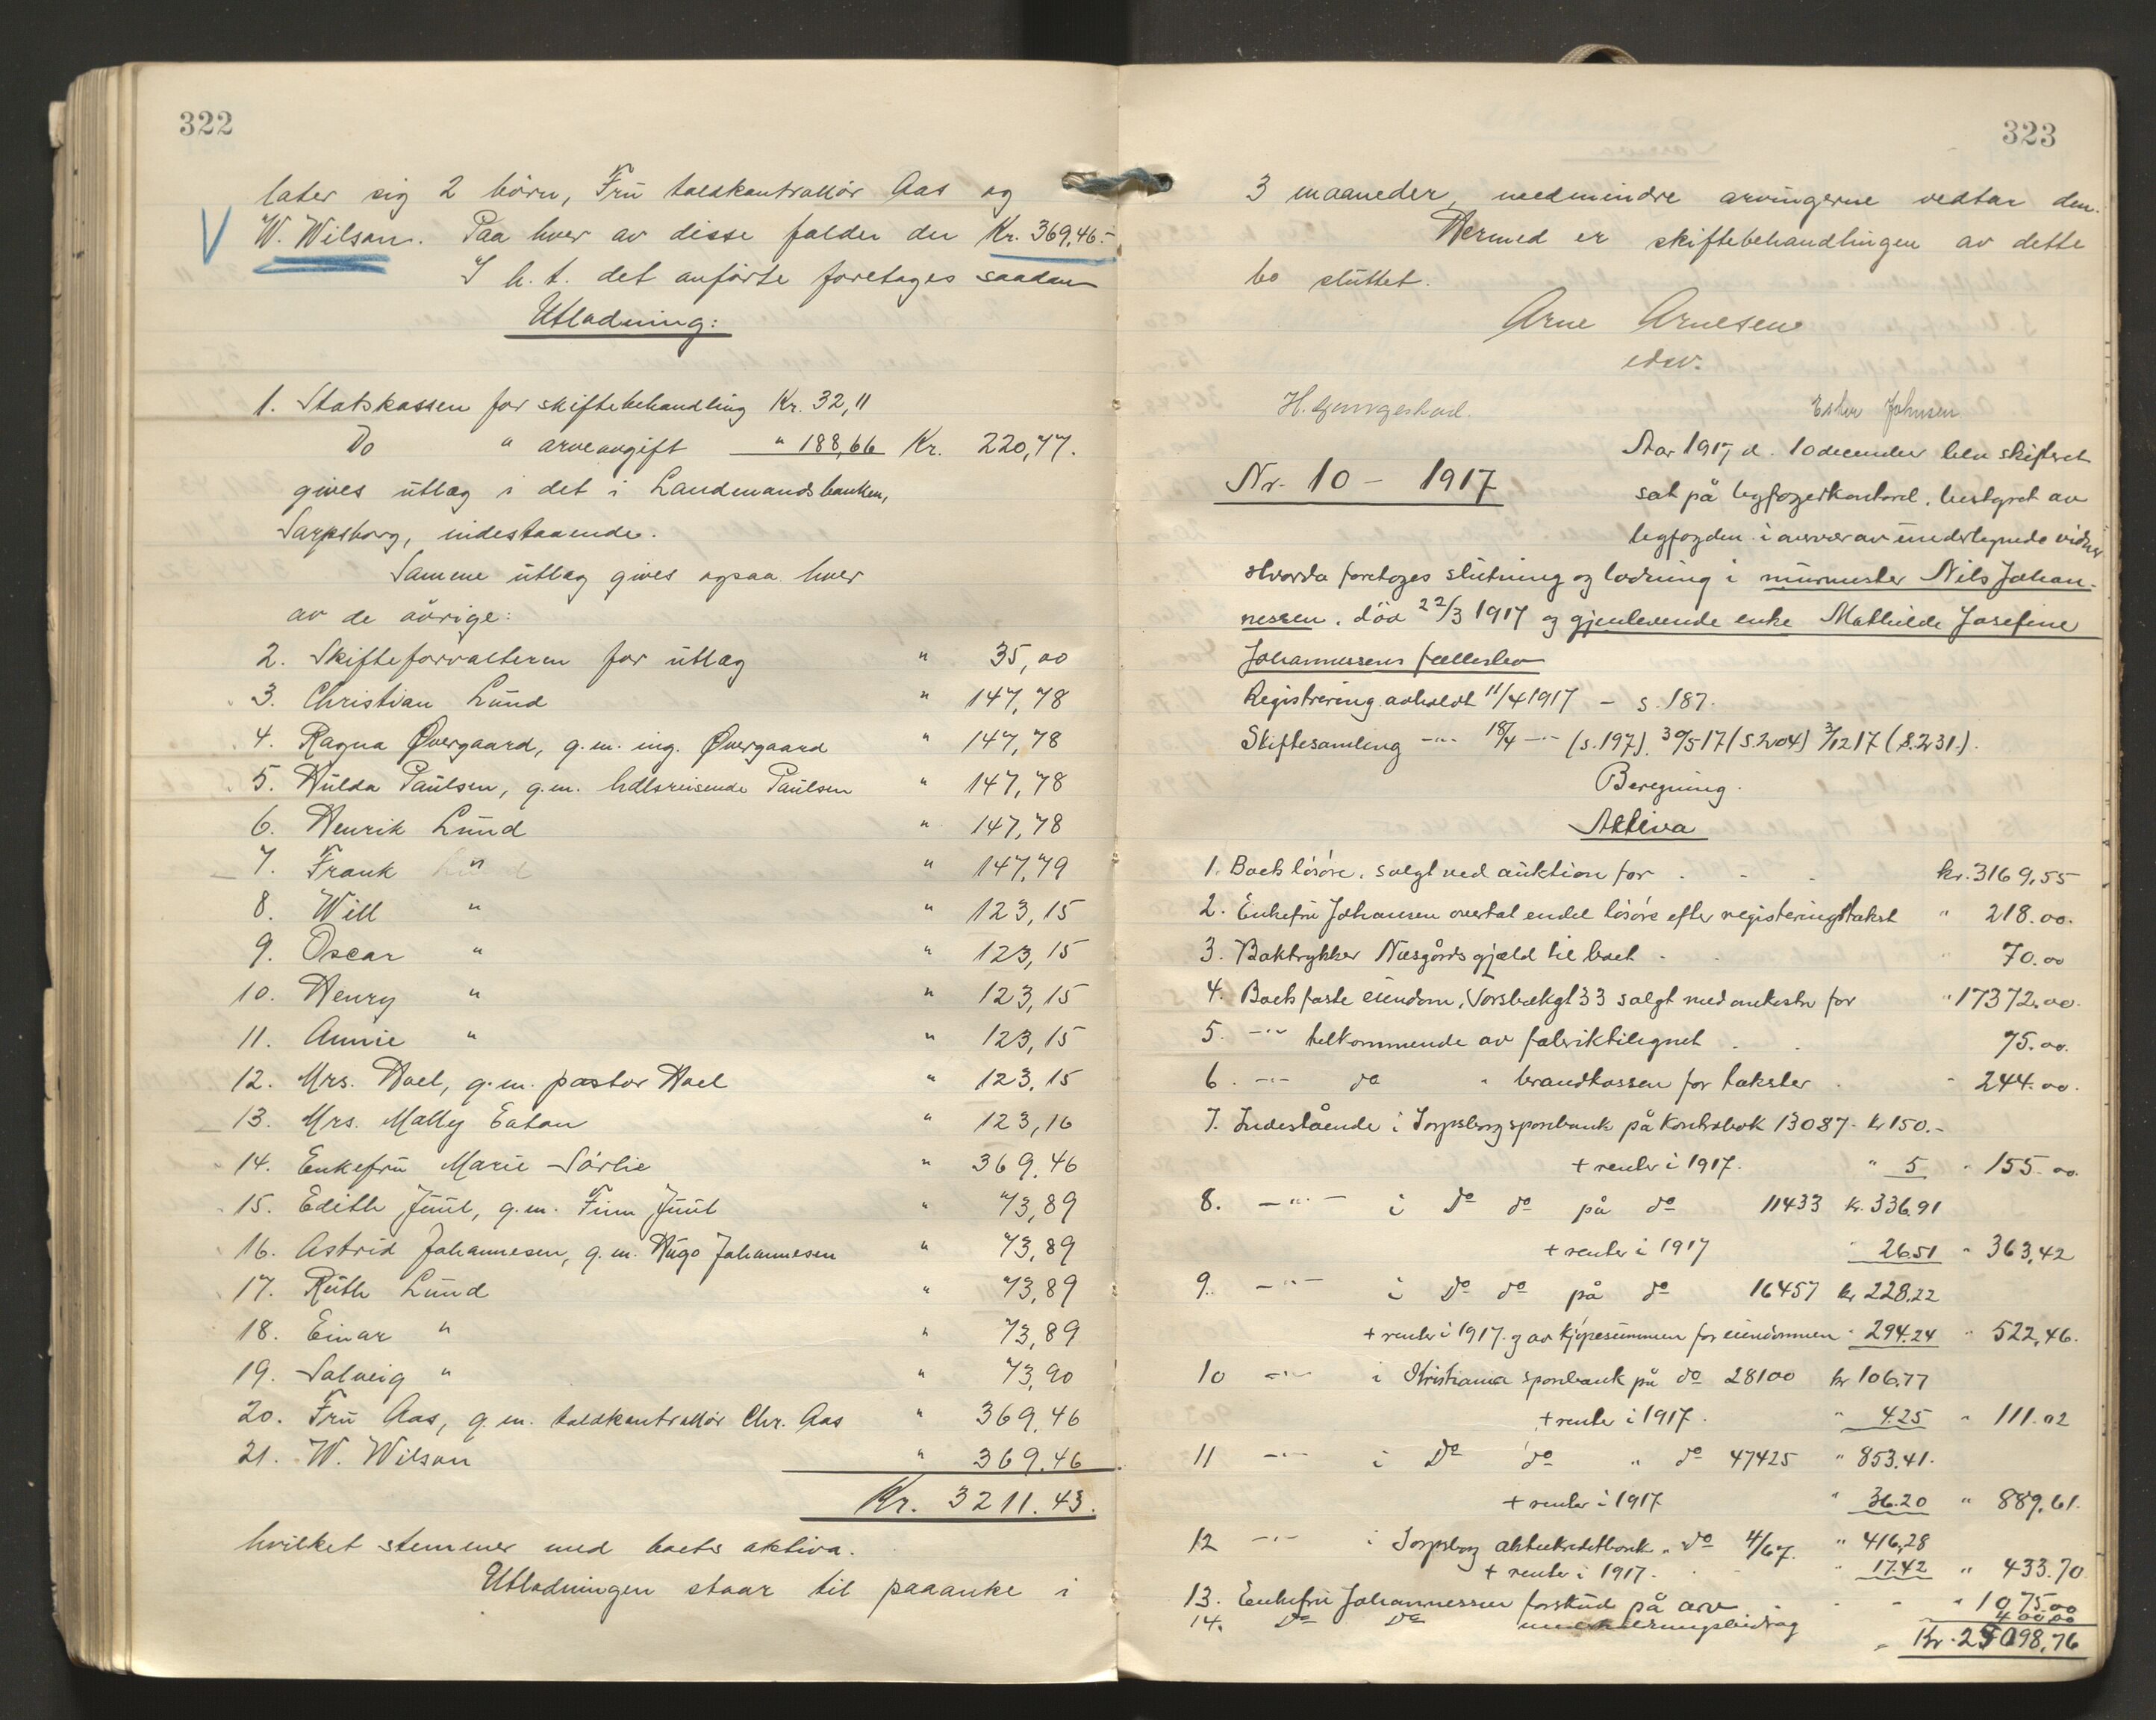 322
later sig 2 börn, Fru toldkontrollör Aas og
W. Wilson. Paa hver av disse falder der Kr. 369,46.-
I h. t. det anförte foretages saadan
Utlodning:
1. Statskassen for skiftebehandling Kr. 32,11
Do " arveavgift " 188,66 Kr. 220,77.
gives utlæg i det i Landmandsbanken,
Sarpsborg, indestaaende.
Samme utlæg gives ogsaa hver
av de övrige:
2. Skifteforvalteren for utlæg " 35,00
3. Christian Lund " 147,78
4. Ragna Øvergaard, g.m. ing. Øvergaard " 147,78
5. Hulda Paulsen, g.m. hdlsreisende Paulsen " 147,78
6. Henrik Lund " 147,78
7. Frank " " 147,79
8. Will " " 123,15
9. Oscar " " 123,15
10. Henry " " 123,15
11. Annie " " 123,15
12. Mrs. Hoel, g.m. pastor Hoel " 123,15
13. Mrs. Mally Eaton " 123,16
14. Enkefru Marie Sörlie " 369,46
15. Edith Juul, g.m. Finn Juul " 73,89
16. Astrid Johannesen, g.m. Hugo Johannesen " 73,89
17. Ruth Lund " 73,89
18. Einar " " 73,89
19. Solveig " " 73,90
20. Fru Aas, g.m. toldkontrollör Chr. Aas " 369,46
21. W. Wilson " 369,46
Kr. 3211.43.
hvilket stemmer med boets aktiva.
Utlodningen staar til paaanke i
323
3 maaneder, medmindre arvingerne vedtar den.
Hermed er skiftebehandlingen av dette
bo sluttet.
Arne Arnesen
edsv.
Ester Johnsen
Nr. 10 - 1917
Aar 1917, d. 10 december blev skifteret
sat på bygfogedkontoret, bestyret av
bygfogden i overvær av undertegnede vidner
Hvorda foretoges slutning og lodning i murmester Nils Johan-
nessen, död 22/3 1917 og gjenlevende enke Mathilde Josefine
Johannessens fællesbo
Registrering avholdt 11/4 1917 - s. 187.
Skiftesamling -"- 18/4 -"- (s. 197). 30/5 17 (s. 204) 3/12 17 (s. 231.).
Beregning.
Aktiva
1. Boets lösöre, solgt ved auktion for kr. 3169,55
2. Enkefru Johansen overtat endel lösöre efter registeringstakst " 218.00.
3. Boktrykker Næsgårds gjæld til boet " 70.00
4. Boets faste eiendom, solgt ved auktion for " 17372.00.
5. -"- tilkommende av fabriktilegnet 75.00.
6. -"- do " brandkassen for takster " 244.00.
7. Indestående i Sarpsborg sparebank på Kontrabok 13087. kr 150.-
+ renter i 1917. " 5 " 155.00.
8. -"- i do do på do 11433 kr. 336.91
+ renter i 1917 " 26.51 " 363,42
9. -"- i do do på do 16457 kr 228.22
+ renter i 1917. og av kjøpesummen for eiendommen " 294.24 " 522,46.
10 -"- i Kristiania sparebank på do 28100 kr 106.77
+ renter i 1917. " 4.25 " 111.02
11 -"- i do do " do 47425 " 853.41.
+ renter i 1917 " 36.20 " 889,61.
12 -"- i Sarpsborg aktiekreditbank " do 4/67. " 416,28
+ renter i 1917. " 17.42 " 433.70
13. Enkefru Johannessen forskud på arv " 1075.00
14. Do Do 400,00
Kr. 25098,76